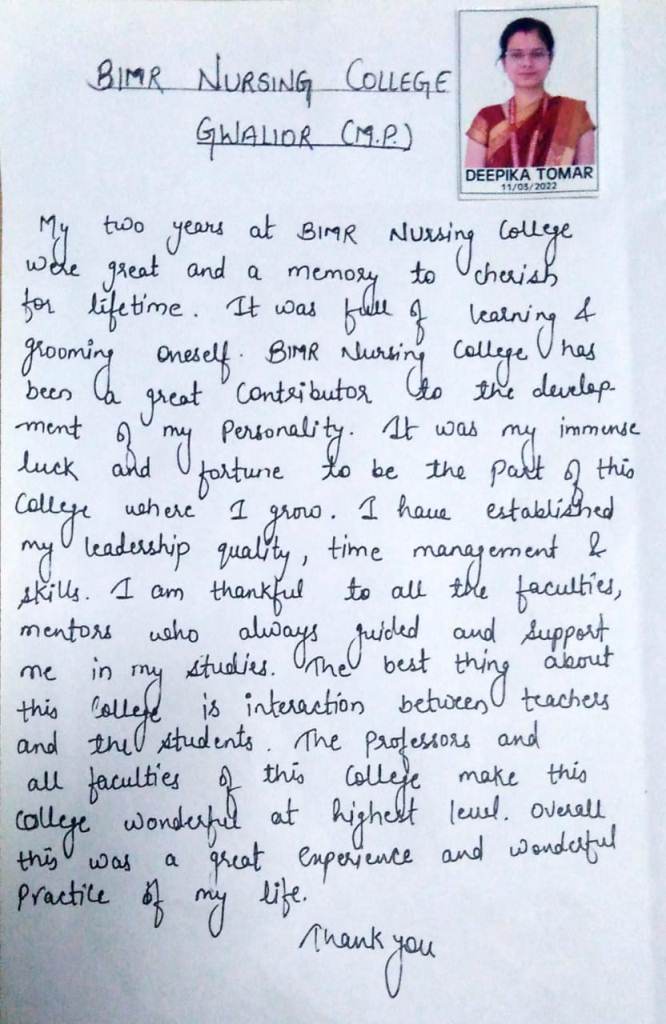 BIMR NURSING COLLEGE
GWALIOR (M.P.)
DEEPIKA TOMAR
11/03/2022
My two years at BIMR Nursing College
were great and a memory to cherish
for lifetime. It was full of learning &
grooming oneself. BIMR Nursing College has
been a great contributor to the develop-
ment of my personality. It was my immense
luck and fortune to be the part of this
College where I grow. I have established
my leadership quality, time management &
skills. I am thankful to all the faculties,
mentors who always guided and support
me in my studies. The best thing about
this college is interaction between teachers
and the students. The professors and
all faculties of this college make this
college wonderful at highest level. Overall
this was a great experience and wonderful
practice of my life.
Thank you